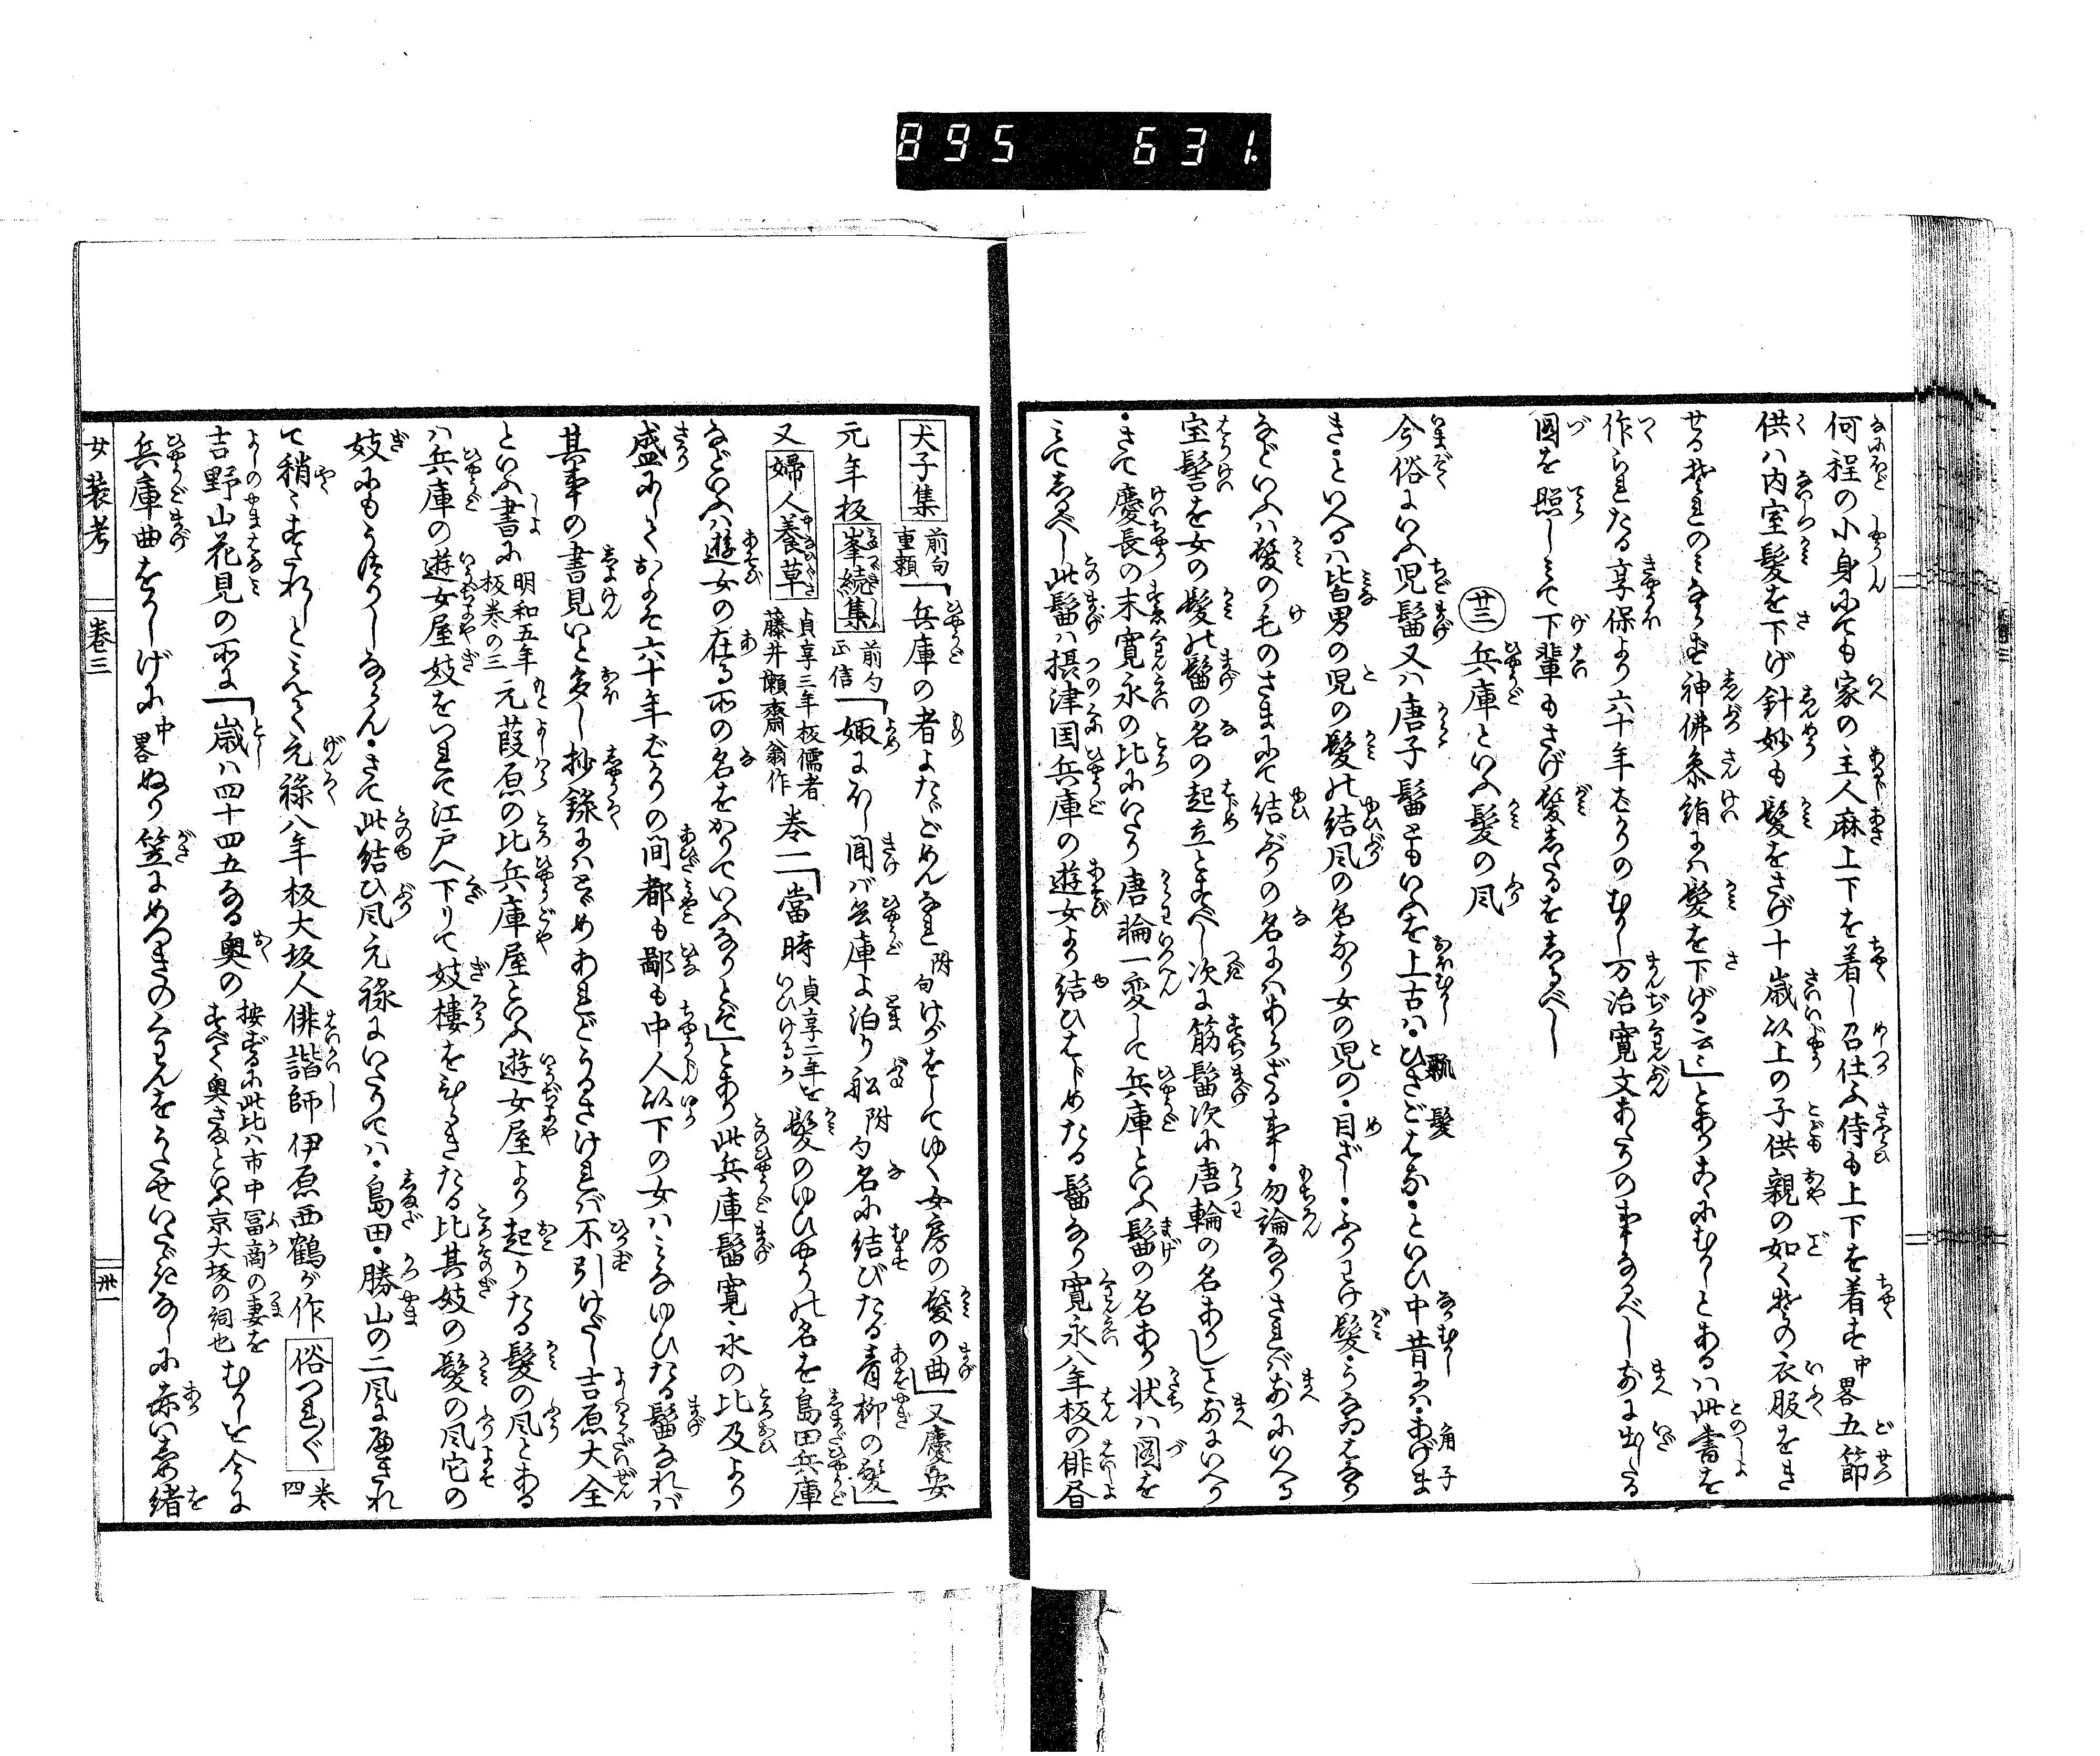 895 631.
何程の小身にても家の主人麻上下を着し召仕ふ侍も上下を着す中畧五節
供ハ内室髪を下げ針妙も髪をさげ十歳以上の子供親の如く其の衣服をき
せる其のミならず神佛参詣にハ髪を下げる云〻」とありこゝにむかしとあるハ此書を
作られたる享保より六十年ばかりのむかし万治寛文あたりの事なるべし前に出したる
図を照しミて下輩もさげ髪したるをしるべし
廿三 兵庫といふ髪の風
今俗にいふ児髷又ハ唐子髷ともいふを上古ハひさごはな・といひ中昔にハ・あげま
き・といへるハ皆男の児の髪の結風の名なり女の児の・目ざし・ふりわけ髪・うなゐはなり
などいふハ髪の毛のさまにて結ぶりの名にハあらざる事・勿論なりされバ前にいへる
宝髻を女の髪の髷の名の起立とすべし次に筋髷次に唐輪の名ありしと前にいへり
・さて慶長の末寛永の比にいたり唐輪一変して兵庫といふ髷の名あり状ハ図を
ミてしるべし此髷ハ摂津国兵庫の遊女より結ひはじめたる髷なり寛永八年板の俳書
犬子集 前句 重頼「兵庫の者よたどめんなれ 附句 けがをしてゆく女房の髪の曲」又慶安
元年板 峯続集 前句 正信「娵にほし聞ば兵庫よ泊り船 附句 名に結びたる青柳の髪」
又 婦人養草 貞享三年板儒者 藤井懶齋翁作 巻二「當時 貞享二年を いひけるか 髪のゆひやうの名を島田兵庫
などいふハ遊女の在る所の名をかりていふなりとぞ」とあり此兵庫髷寛永の比及より
盛にしておよそ六十年ばかりの間都も鄙も中人以下の女ハミなゆひたる髷なれバ
其事の書見いと多し抄録にハとゞめあれどうるさけれバ不引けだし吉原大全
といふ書に 明和五年 板巻の三 元葭原の比兵庫屋といふ遊女屋より起りたる髪の風とある
ハ兵庫の遊女屋妓をつれて江戸へ下りて妓樓をひらきたる比其妓の髪の風它の
妓にもうつりしならん・さて此結ひ風元禄にいたりてハ・島田・勝山の二風に廃され
て稍〻すたれしとミえて元禄八年板大坂人俳諧師伊原西鶴が作 俗つれ〴〵 巻 四
吉野山花見の所に「歳ハ四十四五なる奥の 按ずるに此比ハ市中冨商の妻を すべて奥さまといふ京大坂の詞也 むかしを今に
兵庫曲をかしげに中畧ぬり笠にめつきの くわんをうたせいたゞきなしに赤い糸緒
女装考 巻三 卅一